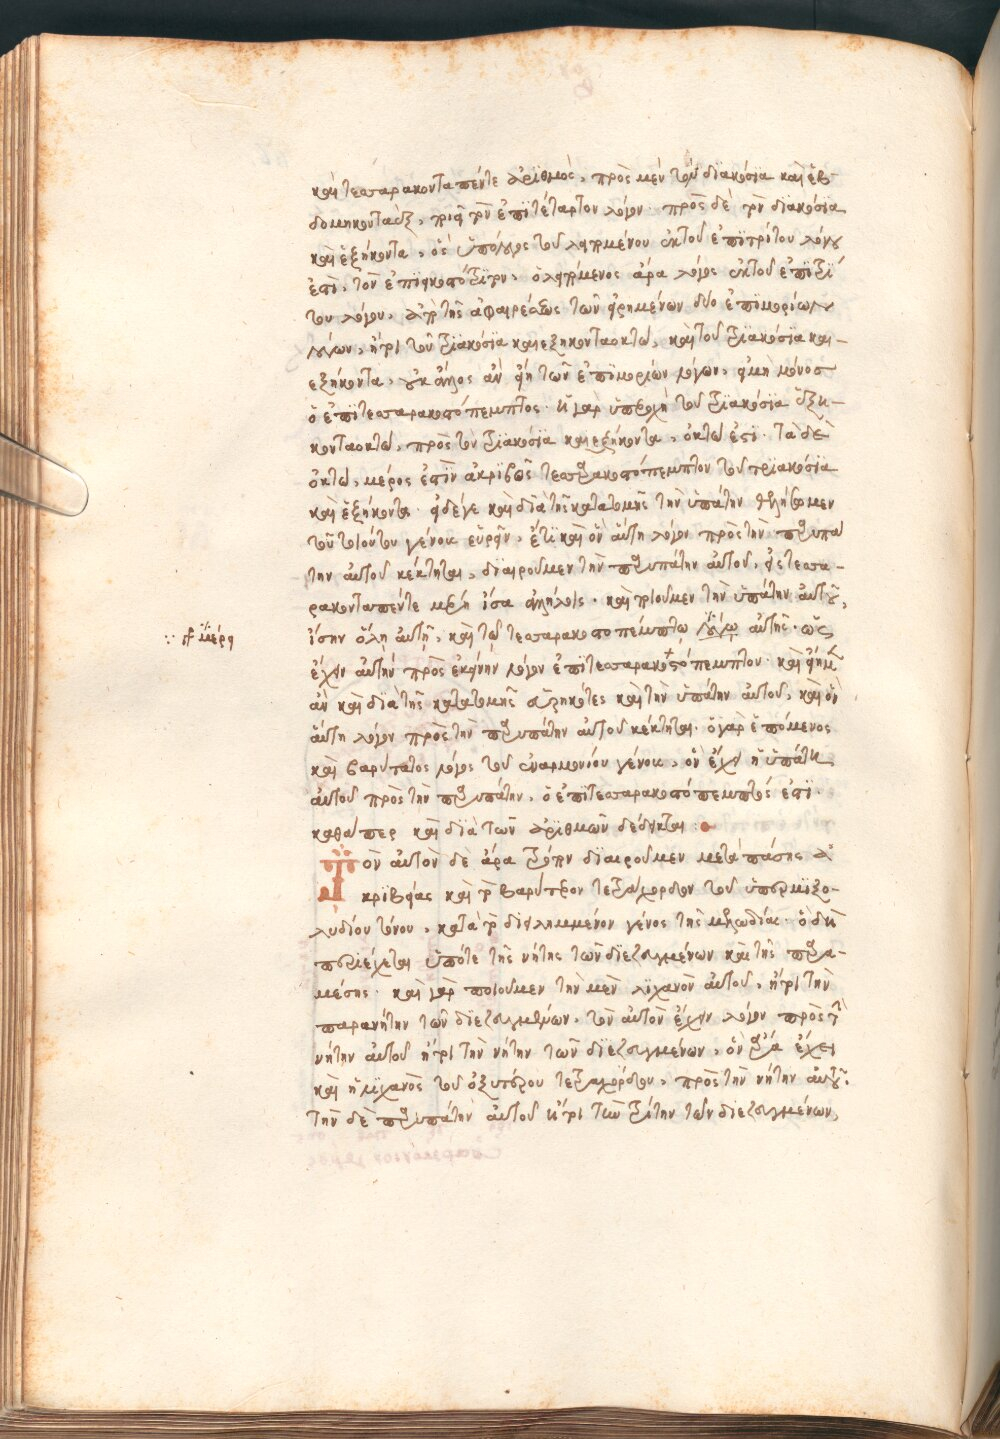 καὶ τεσσαρακονταπέντε ἀριθμὸς, πρὸς μὲν τὸν διακόσια καὶ ἑβ-
δομηκονταὲξ, ποιεῖ τὸν ἐπιτέταρτον λόγον· πρὸς δὲ τὸν διακόσια
καὶ ἑξήκοντα, ὃς ὑπόλογος τοῦ λειπομένου ἐκ τοῦ ἐπιτρίτου λόγου
ἐστὶ, τὸν ἐπιεικοστότριτον· ὁ λειπόμενος ἄρα λόγος ἐκ τοῦ ἐπιτρί
του λόγου, ἀπὸ τῆς ἀφαιρέσεως τῶν εἰρημένων δύο ἐπιμορίων
λόγων, ἤτοι τοῦ τριακόσια καὶ εξηκονταοκτὼ, καὶ τοῦ τριακόσια καὶ-
εξήκοντα, οὐκ ἄλλος ἂν εἴη τῶν ἐπιμορίων λόγων, εἰ μὴ μόνος
ὁ ἐπιτεσσαρακοστόπεμπτος· ἡ γὰρ ὑπεροχὴ τοῦ τριακόσια ἑξη-
κονταοκτὼ, πρὸς τὸν τριακόσια καὶ εξήκοντα, ὀκτώ ἐστι· τὰ δὲ
ὀκτὼ, μέρος ἐστὶν ἀκριβῶς τεσσαρακοστόπεμπτον τοῦ τριακόσια
καὶ ἑξήκοντα· εἰ δέ γε καὶ διὰ τῆς κατατομῆς τὴν ὑπάτην θελήσομεν
τοῦ τοιούτου γένους εὑρεῖν, ἔτι καὶ ὃν αὕτη λόγον πρὸς τὴν προσυπά
την αὐτοῦ κέκτηται, διαιροῦμεν τὴν προσυπάτην αὐτοῦ, εἰς τεσσα-
ρακονταπέντε μέρη ἴσα ἀλλήλοις· καὶ ποιοῦμεν τὴν ὑπάτην αὐτοῦ,
ἴσην ὅλῃ αὐτῇ, καὶ τῷ τεσσαρακοστοπέμπτῳ αὐτῆς· ὡς
∵ μέρει
ἔχειν αὐτὴν πρὸς ἐκείνην λόγον ἐπιτεσσαρακοστόπεμπτον· καὶ εἴημεν
ἂν καὶ διὰ τῆς κατατομῆς εἰληφότες καὶ τὴν ὑπάτην αὐτοῦ, καὶ ὃν
αὕτη λόγον πρὸς τὴν προσυπάτην αὐτοῦ κέκτηται· ὁ γὰρ ἑπόμενος
καὶ βαρύτατος λόγος τοῦ ἐναρμονίου γένους, ὃν ἔχει ἡ ὑπάτη
αὐτοῦ πρὸς τὴν προσυπάτην, ὁ ἐπιτεσσαρακοστόπεμπτός ἐστι·
καθάπερ καὶ διὰ τῶν ἀριθμῶν δέδεικται :
Τὸν αὐτὸν δὲ ἄρα τρόπον διαιροῦμεν μετὰ πάσης ἀ
κριβείας καὶ τὸ βαρύτερον τετράχορδον τοῦ ὑπερμιξο-
λυδίου τόνου, κατὰ τὸ διειλημμένον γένος τῆς μελωδίας· ὃ δὴ
περιέχεται ὑπό τε τῆς νήτης τῶν διεζευγμένων καὶ τῆς παρα-
μέσης· καὶ γὰρ ποιοῦμεν τὴν μὲν λιχανὸν αὐτοῦ, ἤτοι τὴν
παρανήτην τῶν διεζευγμένων, τὸν αὐτὸν ἔχειν λόγον πρὸς τὴν
νήτην αὐτοῦ ἤτοι τὴν νήτην τῶν διεζευγμένων, ὃν ἔχει
καὶ ἡ λιχανὸς τοῦ ὀξυτέρου τετραχόρδου, πρὸς τὴν νήτην αὐτοῦ·
τὴν δὲ προσυπάτην αὐτοῦ ἤτοι τὴν τρίτην τῶν διεζευγμένων,